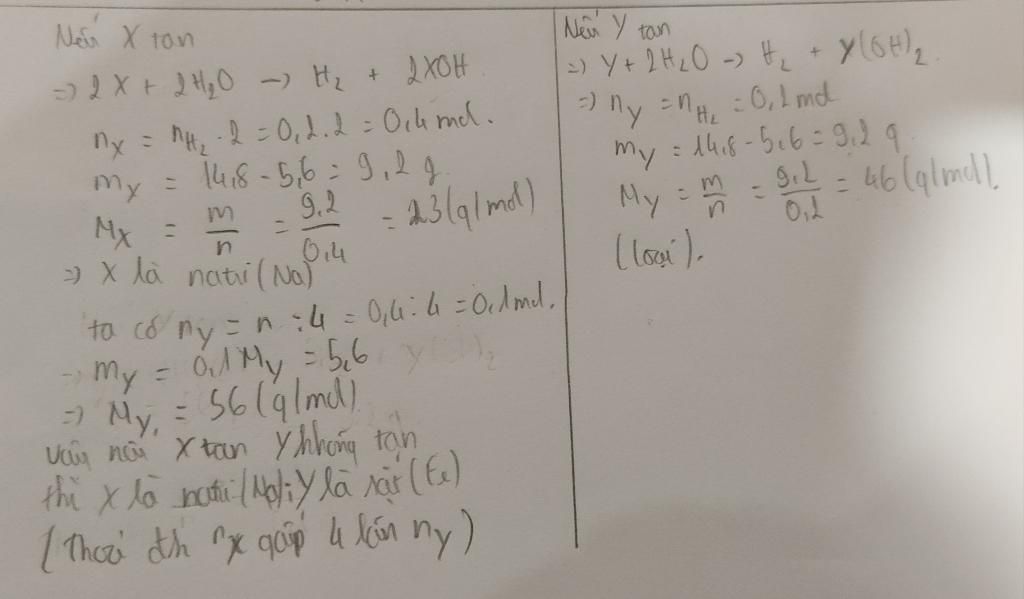 Nếu X tan
=> 2X + 2H₂O -> H₂ + 2XOH
nX = nH₂ . 2 = 0,2.2 = 0,4 mol.
mX = 14,8 - 5,6 = 9,2 g
MX = m/n = 9,2/0,4 = 23 (g/mol)
=> X là natri (Na)
ta có nY = n : 4 = 0,4 : 4 = 0,1 mol.
-> mY = 0,1 MY = 5,6
=> MY = 56 (g/mol)
Vậy nếu X tan Y không tan
thì X là natri (Na); Y là sắt (Fe)
(Thoả đk nX gấp 4 lần nY)
Nếu Y tan
=> Y + 2H₂O -> H₂ + Y(OH)₂.
=> nY = nH₂ = 0,2 mol
mY = 14,8 - 5,6 = 9,2 g
MY = m/n = 9,2/0,2 = 46 (g/mol).
(loại).